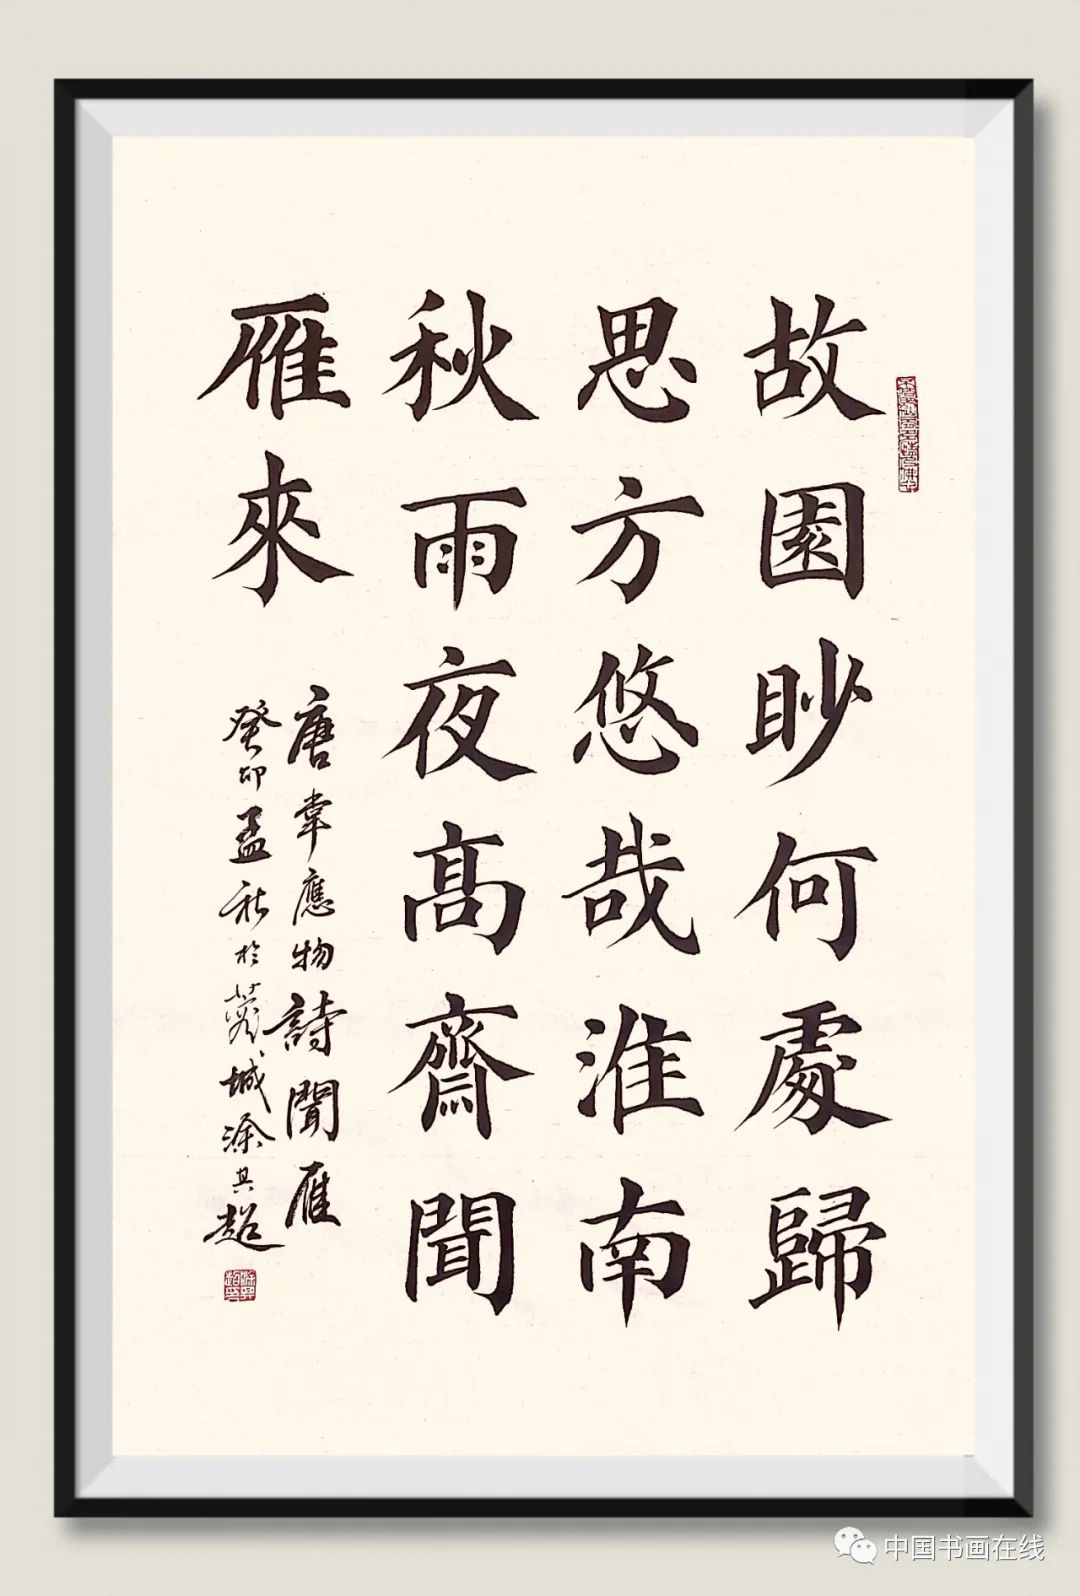 故園眇何處歸
思方悠哉淮南
秋雨夜高齋聞
雁來
唐韋應物詩聞雁
癸卯孟秋於蓉城涂其超
中国书画在线